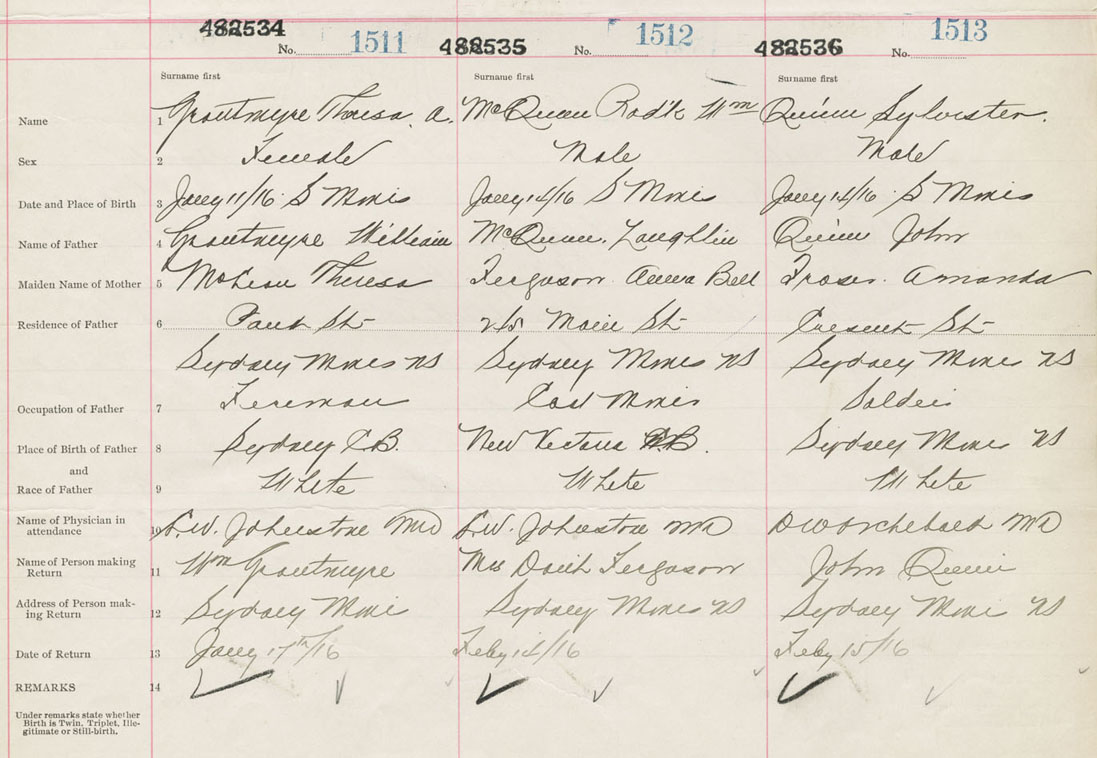 482534 No. 1511 482535 No. 1512 482536 No. 1513
Surname first Surname first Surname first
Name 1 Groutmyre Theresa. A. McQueen Rod'k Wm Quinn Sylvester.
Sex 2 Female Male Male
Date and Place of Birth 3 Jany 11/16 S Mines Jany 14/16 S Mines Jany 14/16 S Mines
Name of Father 4 Groutmyre William McQueen, Laughlin Quinn John
Maiden Name of Mother 5 McLean Theresa Ferguson Anna Bell Fraser. Amanda
Residence of Father 6 St Main St Cresent St
Sydney Mines NS Sydney Mines NS Sydney Mines NS
Occupation of Father 7 Fireman Coal Miner Soldier
Place of Birth of Father 8 Sydney C.B. New Victoria C.B. Sydney Mines NS
and
Race of Father 9 White White White
Name of Physician in
attendance 10 L.W. Johnstone MD L.W. Johnstone MD MD
Name of Person making
Return 11 Wm Groutmyre Mrs Ferguson John Quinn
Address of Person mak-
ing Return 12 Sydney Mine Sydney Mines NS Sydney Mines NS
Date of Return 13 Jany 17th/16 Feby 14/16 Feby 15/16
REMARKS 14
Under remarks state whether
Birth is Twin, Triplet, Ille-
gitimate or Still-birth.